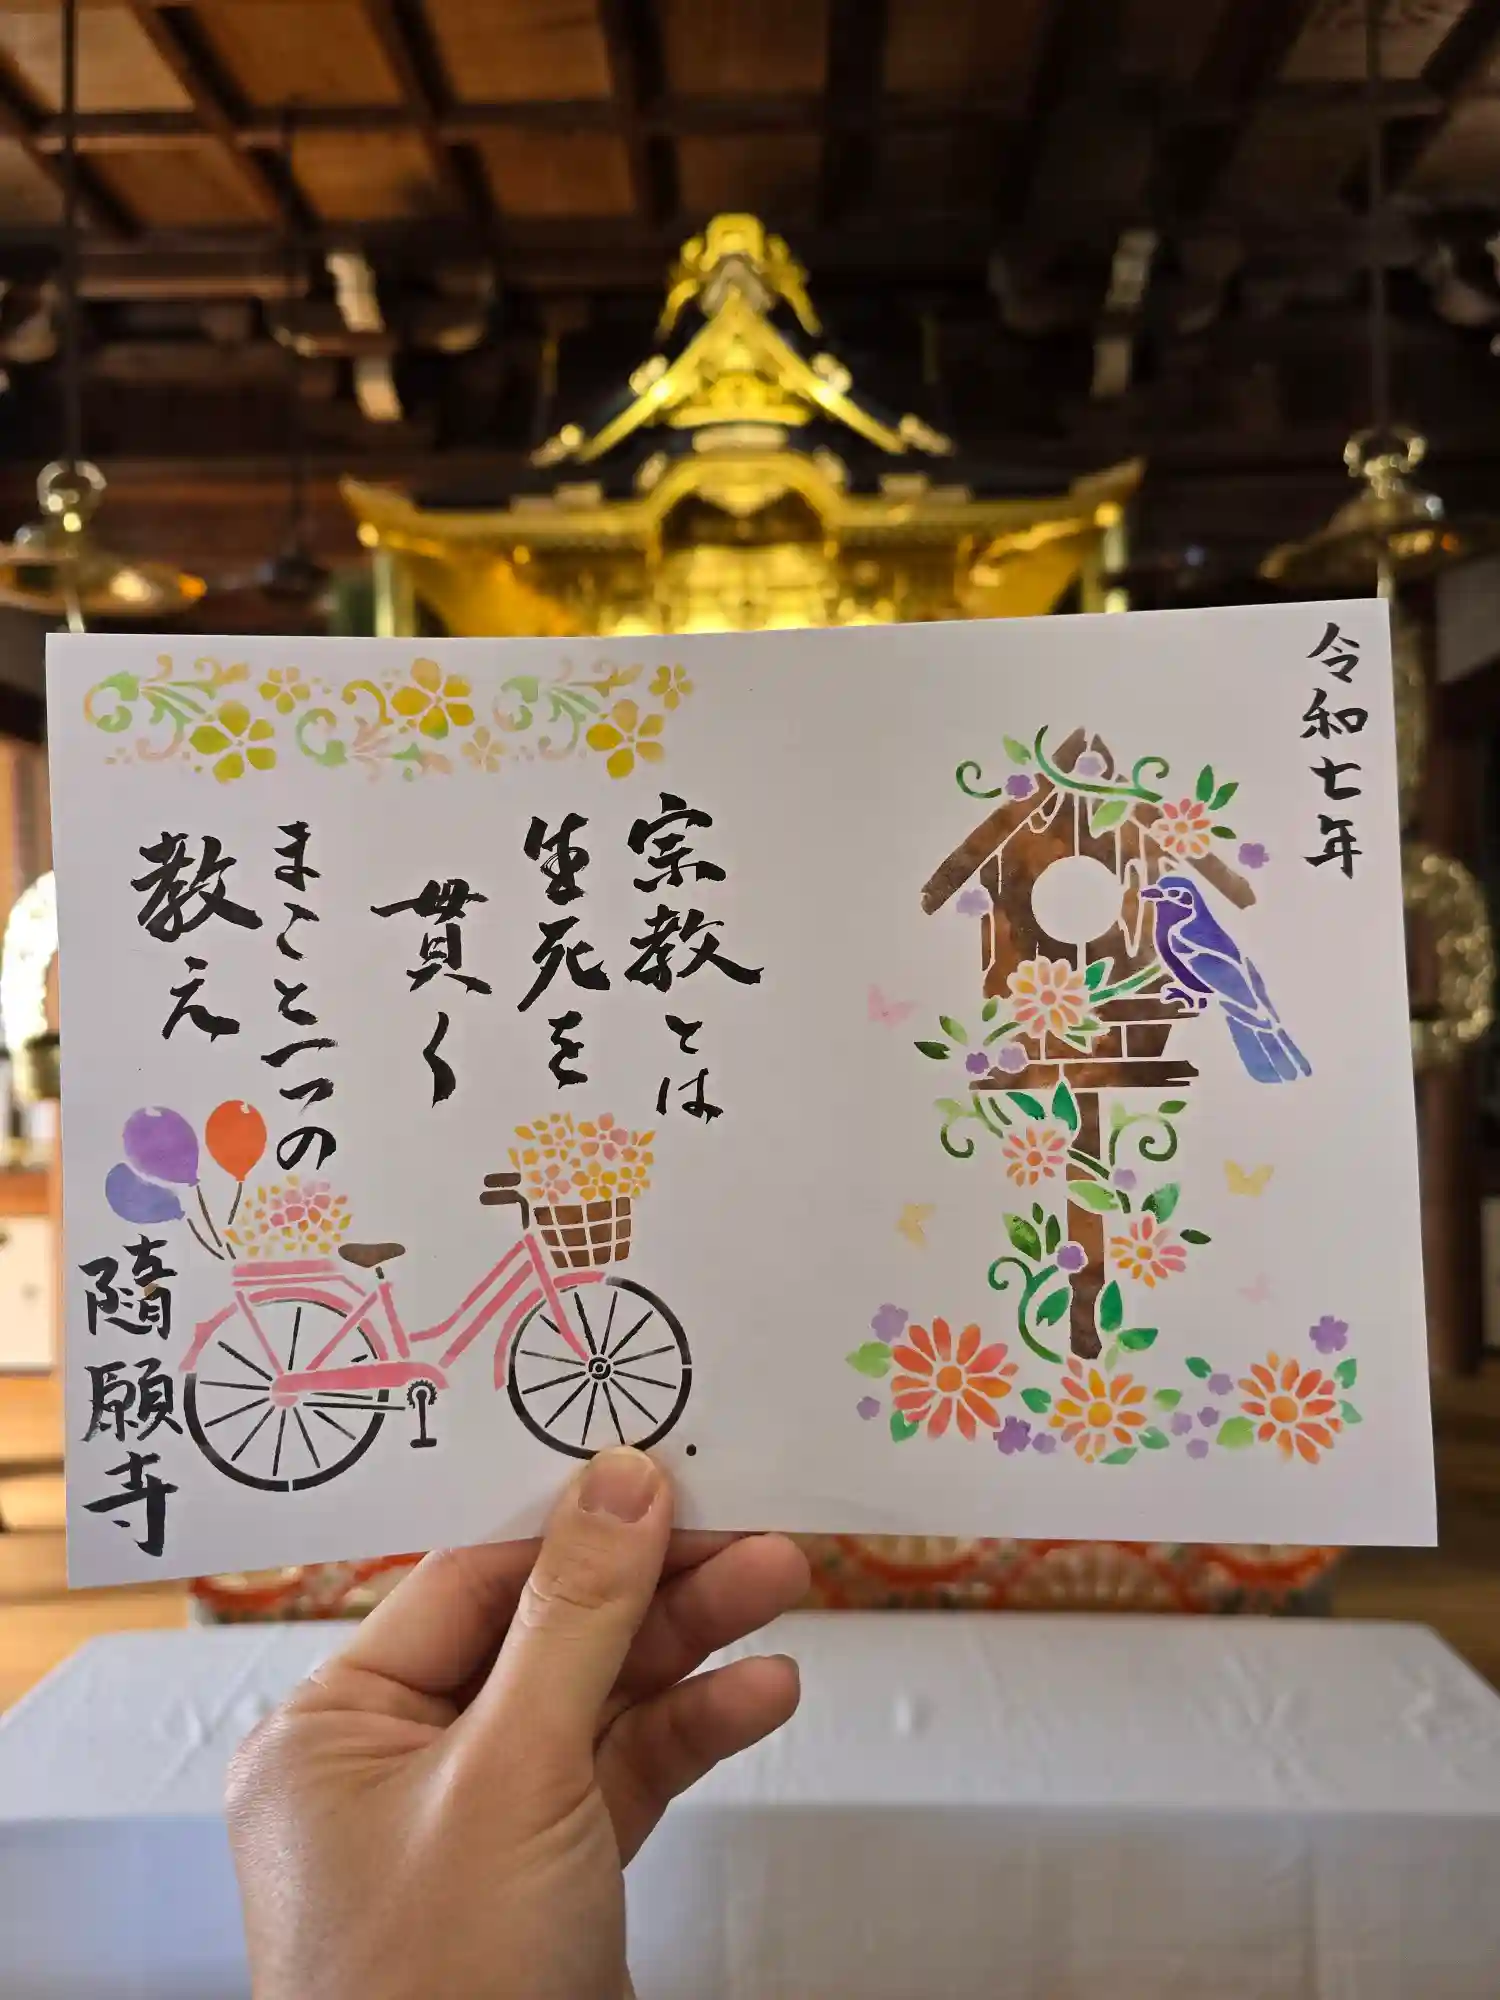 令和七年
宗教とは
生死を
貫く
まこと一つの
教え
隨願寺